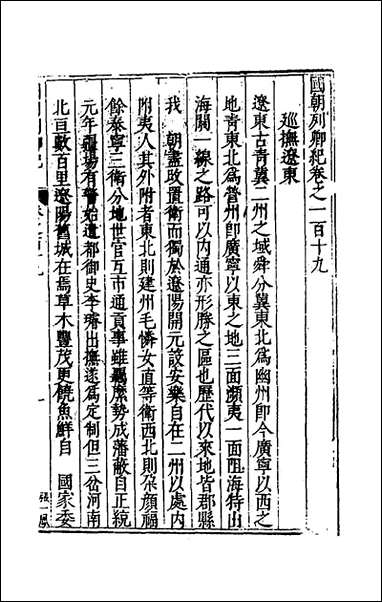 國朝列卿紀卷之一百十九
廵撫遼東
遼東古青冀二州之域舜分冀東北爲幽州即今廣寧以西之
地青東北爲營州即廣寧以東之地三面瀕夷一面阻海特出
海關一線之路可以内通亦形勝之區也歷代以來地皆郡縣
我 朝盡改置衛而獨於遼陽開元設安樂自在二州以處内
附夷人其外附者東北則建州毛憐女直等衛西北則朶顔福
餘泰寧三衛分地世官互市通貢事雖羈縻勢成藩蔽自正統
元年疆場有警始遣都御史李濬出撫遂爲定制但三岔河南
北亘數百里遼陽舊城在焉草木豐茂更饒魚鮮自 國家委